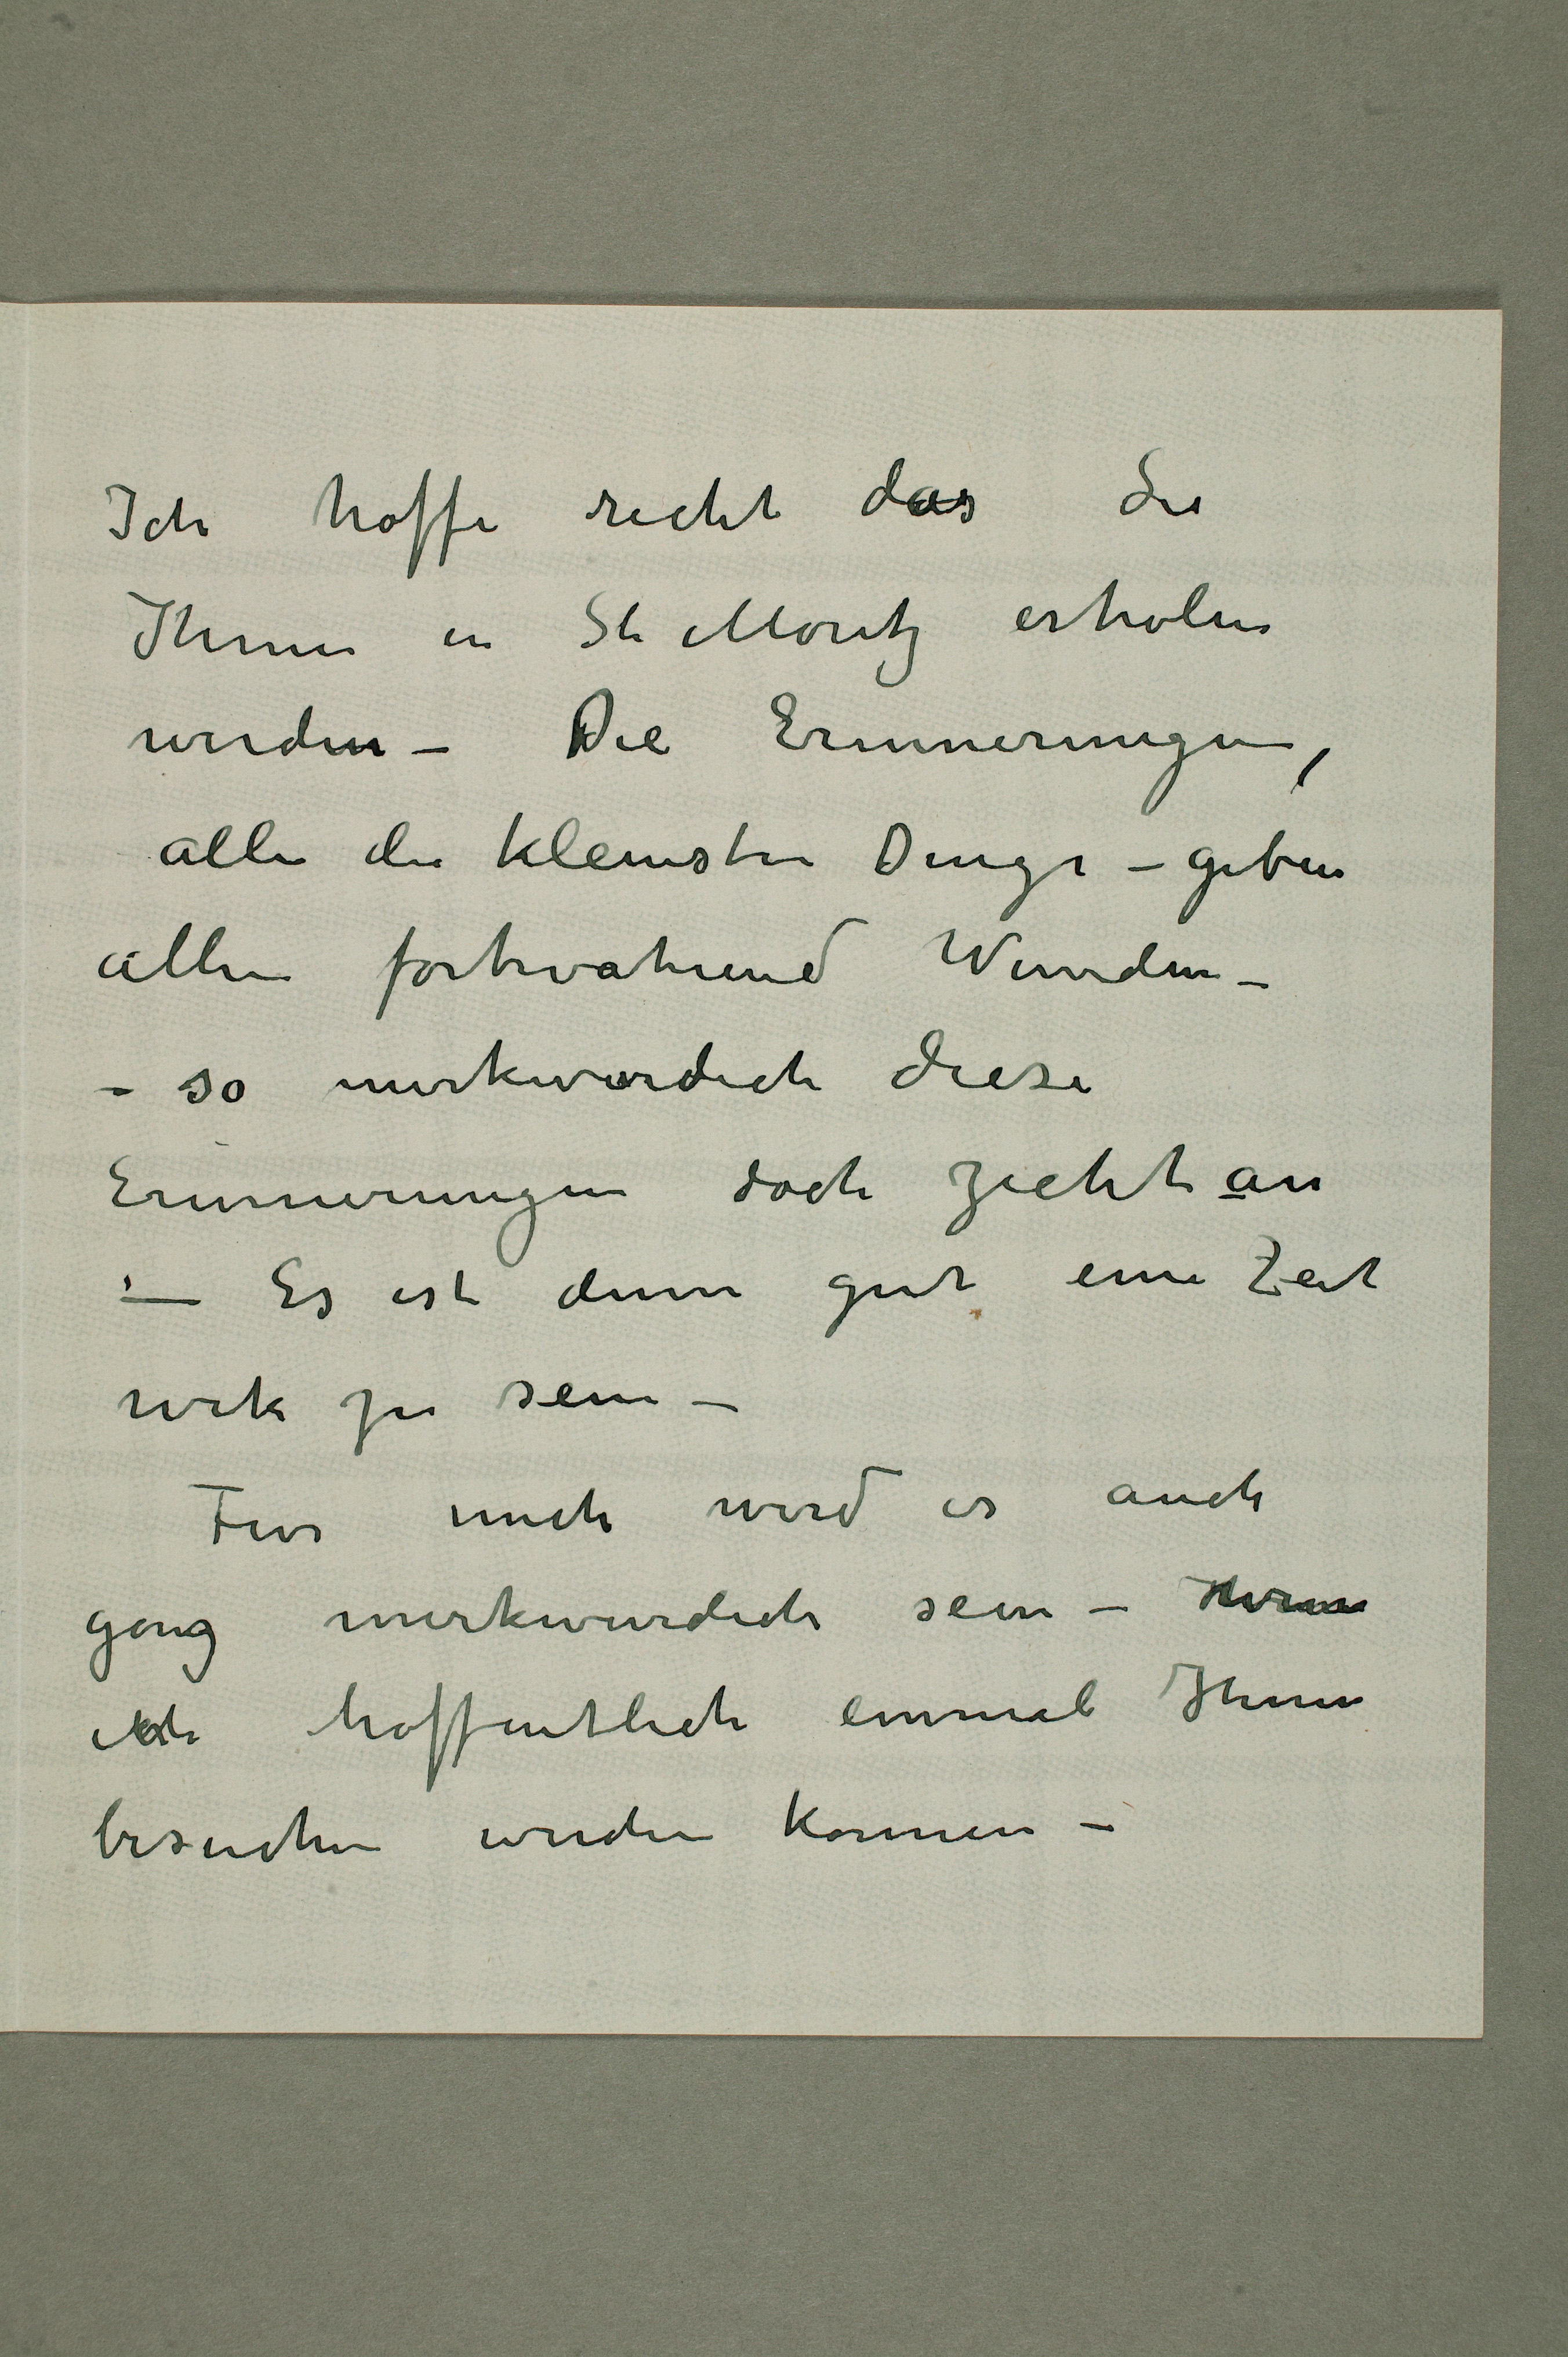 Ich hoffe recht das Sie
Ihnen in St Moritz erholen
werden – Die Erinnerungen,
alle die kleinsten Dinge – geben
allen fortwahrend Wunden –
– so merkwurdich diese
Erinnerungen doch zieht an
– Es ist denn gut eine Zeit
wek zu sein –
Fur mich wird es auch
ganz merkwurdich sein – wenn
ich hoffentlich einmal Ihnen
besuchen werden konnen –